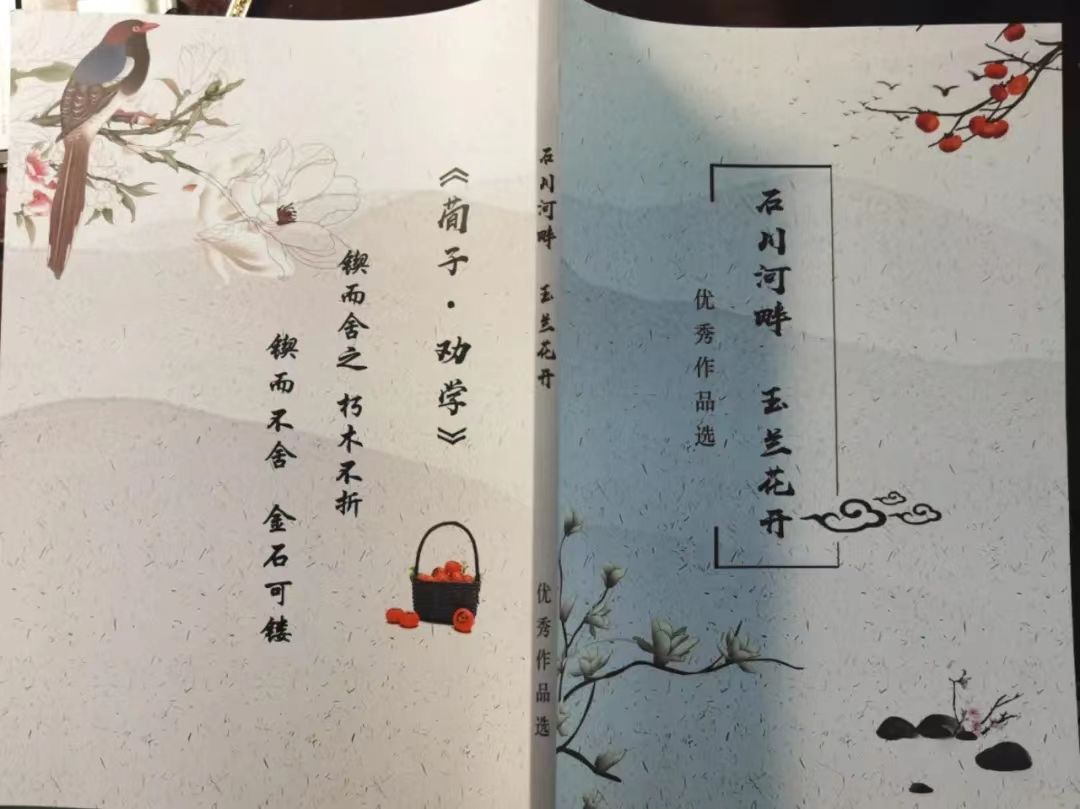 石川河畔 玉兰花开
优秀作品选
石川河畔 玉兰花开 优秀作品选
《荀子·劝学》
锲而舍之 朽木不折
锲而不舍 金石可镂